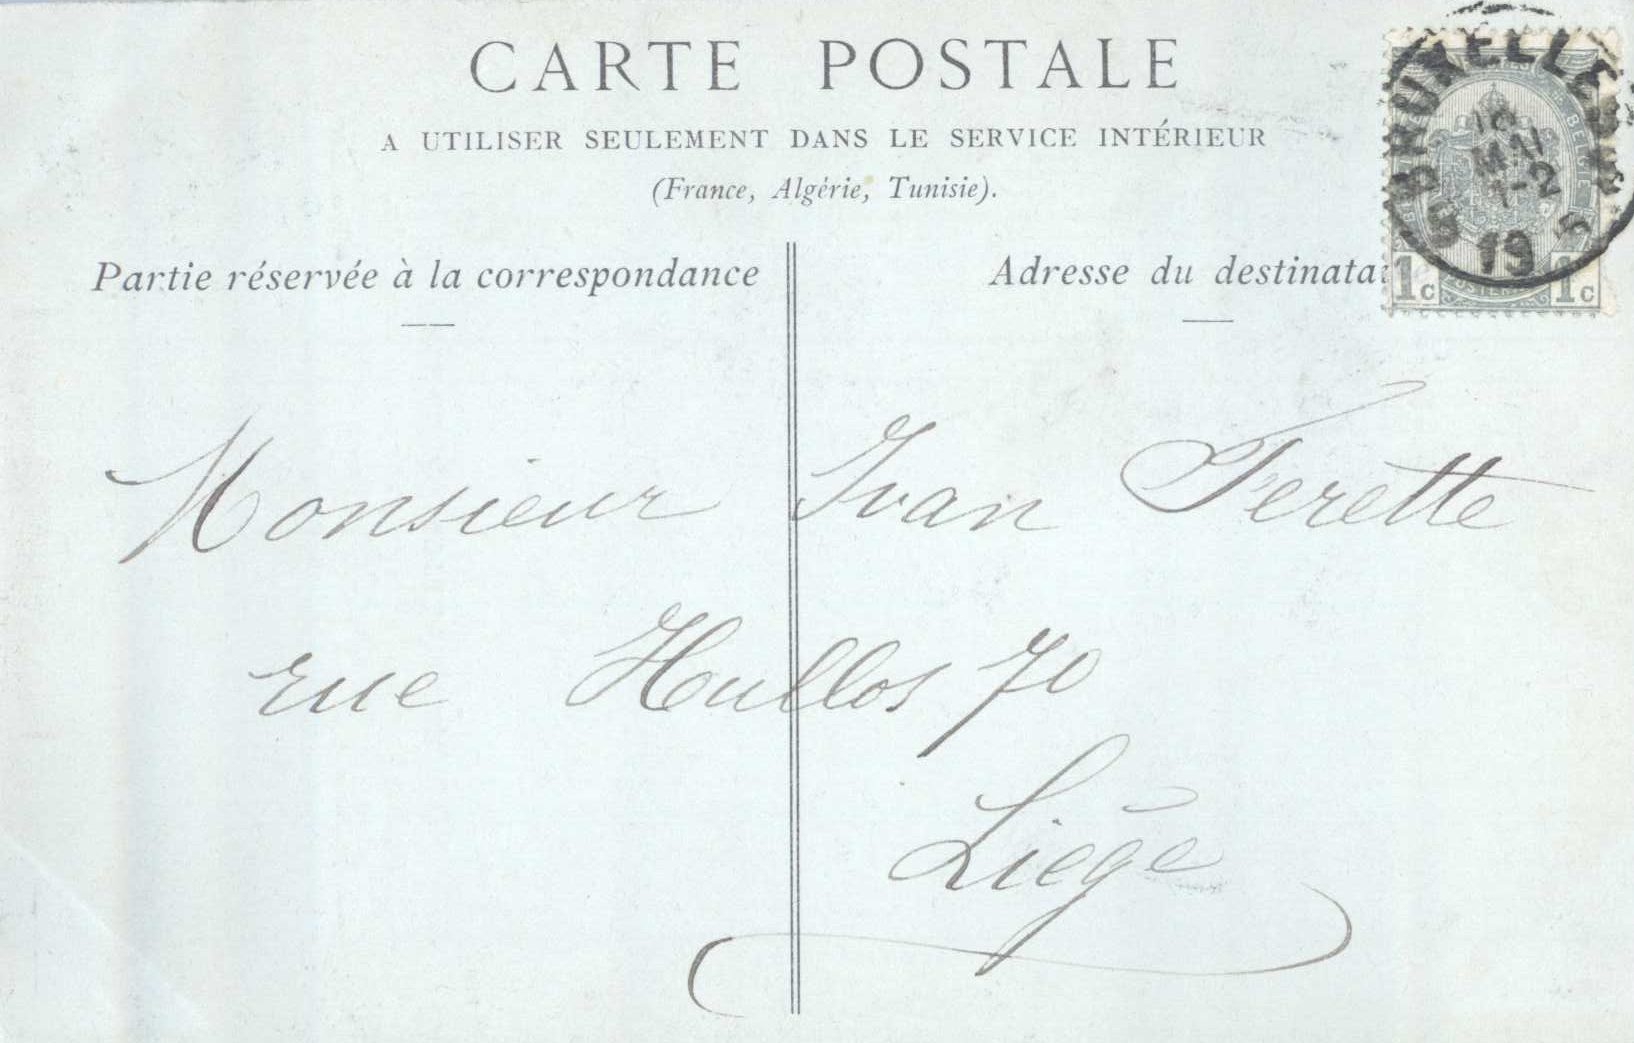 CARTE POSTALE
A UTILISER SEULEMENT DANS LE SERVICE INTÉRIEUR
(France, Algérie, Tunisie).
Partie réservée à la correspondance
Adresse du destinatai
BRUXELLES
MAI
1-2
19
1c 1c
Monsieur Ivan Ferette
rue Hullos 70
Liége